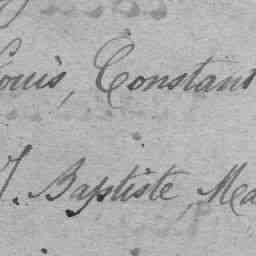 Louis, Constant
J. Baptiste, Ma